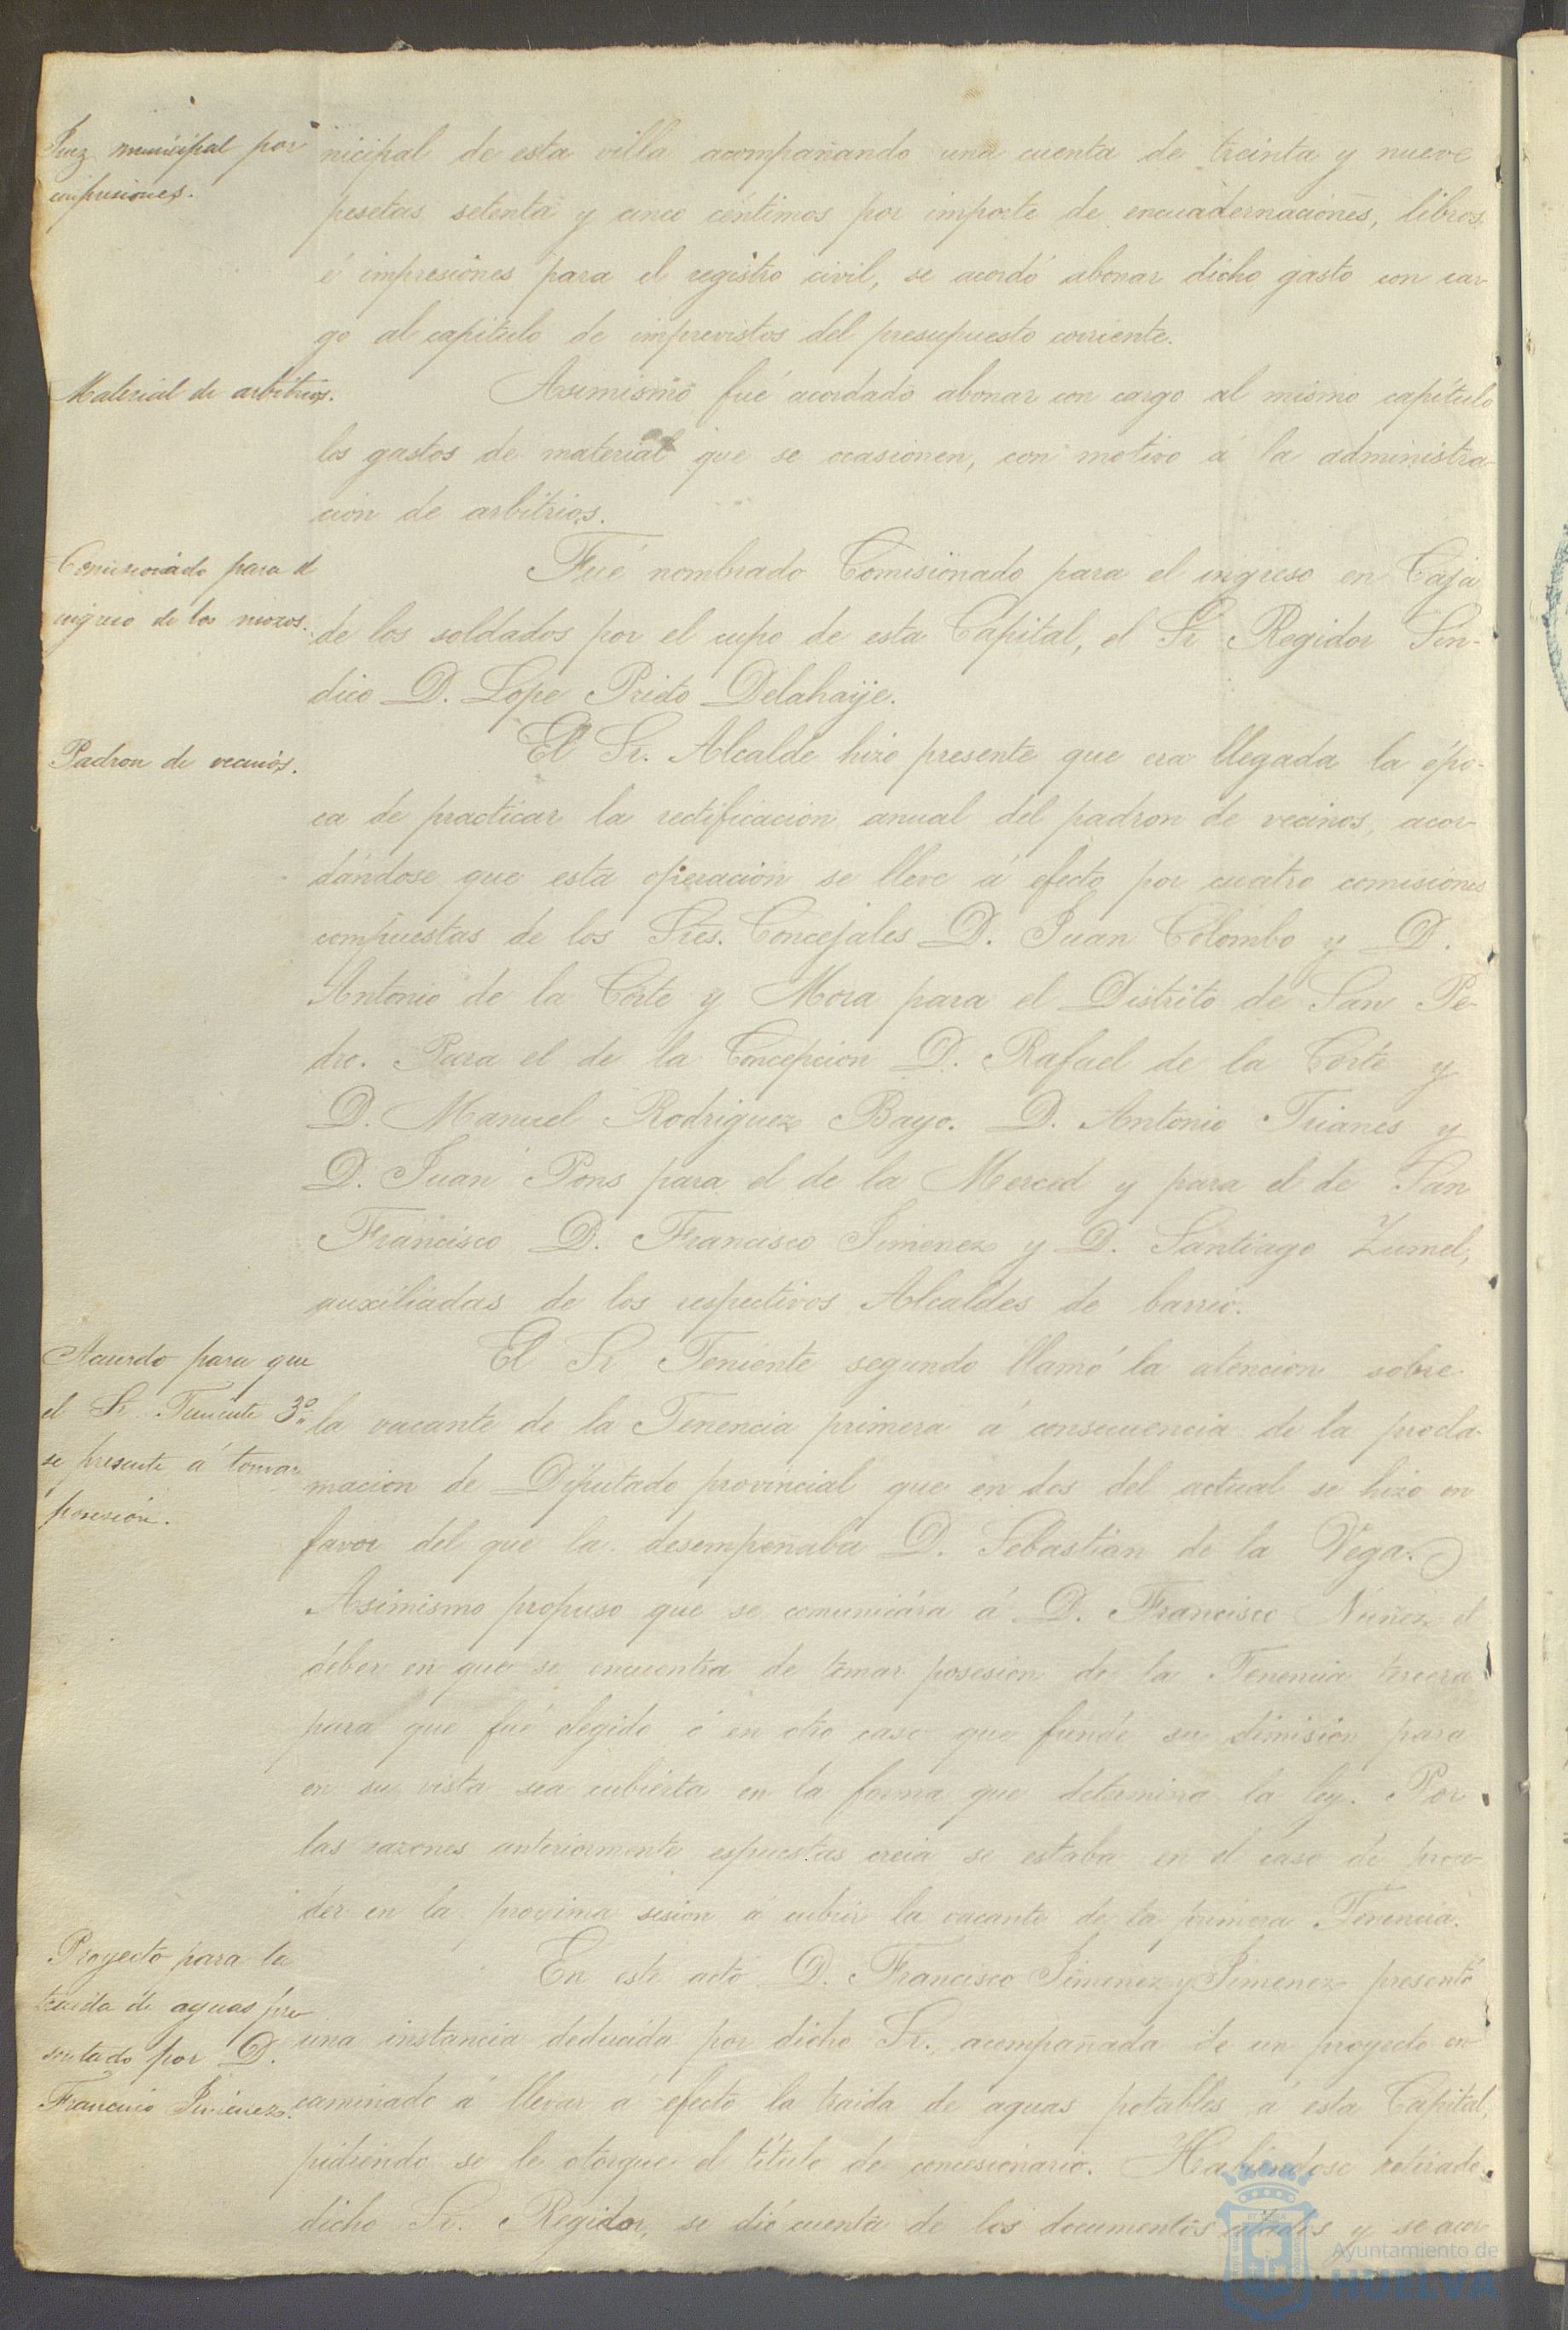 Juez municipal por
impresiones.
nicipal de esta villa acompañando una cuenta de treinta y nueve
pesetas setenta y cinco céntimos por importe de encuadernaciones, libros
é impresiones para el registro civil, se acordó abonar dicho gasto con car-
go al capítulo de imprevistos del presupuesto corriente.
Material de arbitrios.
Asimismo fué acordado abonar con cargo al mismo capítulo
los gastos de material que se ocasionen, con motivo á la administra-
cion de arbitrios.
Comisionado para el
ingreso de los mozos.
Fué nombrado Comisionado para el ingreso en Caja
de los soldados por el cupo de esta Capital, el Sr Regidor Sín-
dico D. Lope Prieto Delahaije.
Padron de vecinos.
El Sr. Alcalde hizo presente que era llegada la épo-
ca de practicar la rectificacion anual del padron de vecinos, acor-
dándose que esta operacion se lleve á efecto por cuatro comisiones
compuestas de los Sres. Concejales D. Juan Colombo y D.
Antonio de la Corte y Mora para el Distrito de San Pe-
dro. Para el de la Concepcion D. Rafael de la Corte y
D. Manuel Rodriguez Bayo. D. Antonio Trianes y
D. Juan Pons para el de la Merced y para el de San
Francisco D. Francisco Jimenez y D. Santiago Zumel,
auxiliadas de los respectivos Alcaldes de barrio.
Acuerdo para que
el Sr. Teniente 3º
se presente á tomar
posesión.
El Sr Teniente segundo llamó la atencion sobre
la vacante de la Tenencia primera á consecuencia de la procla-
macion de Diputado provincial que en dos del actual se hizo en
favor del que la desempeñaba D. Sebastián de la Vega.
Asimismo propuso que se comunicára á D. Francisco Núñez el
deber en que se encuentra de tomar posesion de la Tenencia tercera
para que fué elegido ó en otro caso que funde su dimisión para
en su vista sea cubierta en la forma que determina la ley. Por
las razones anteriormente espuestas creia se estaba en el caso de proce-
der en la proxima sesion á cubrir la vacante de la primera Tenencia.
Proyecto para la
traida de aguas pre-
sentado por D.
Francisco Jiménez.
En este acto D. Francisco Jimenez y Jimenez presentó
una instancia deducida por dicho Sr., acompañada de un proyecto en-
caminado á llevar á efecto la traida de aguas potables á esta Capital,
pidiendo se le otorgue el título de concesionario. Habiendose retirado
dicho Sr. Regidor, se dió cuenta de los documentos citados y se acor-
Ayuntamiento de
HUELVA